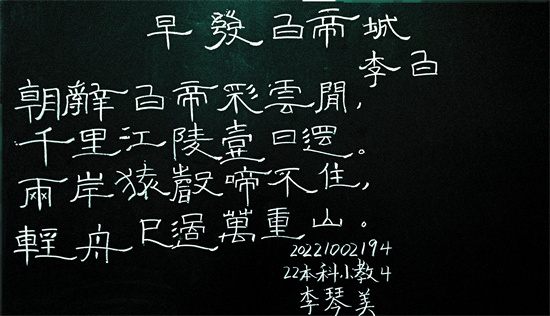 早發白帝城
李白
朝辭白帝彩雲間,
千里江陵壹日還。
兩岸猿聲啼不住,
輕舟已過萬重山。
20221002194
22本科小教4
李琴美